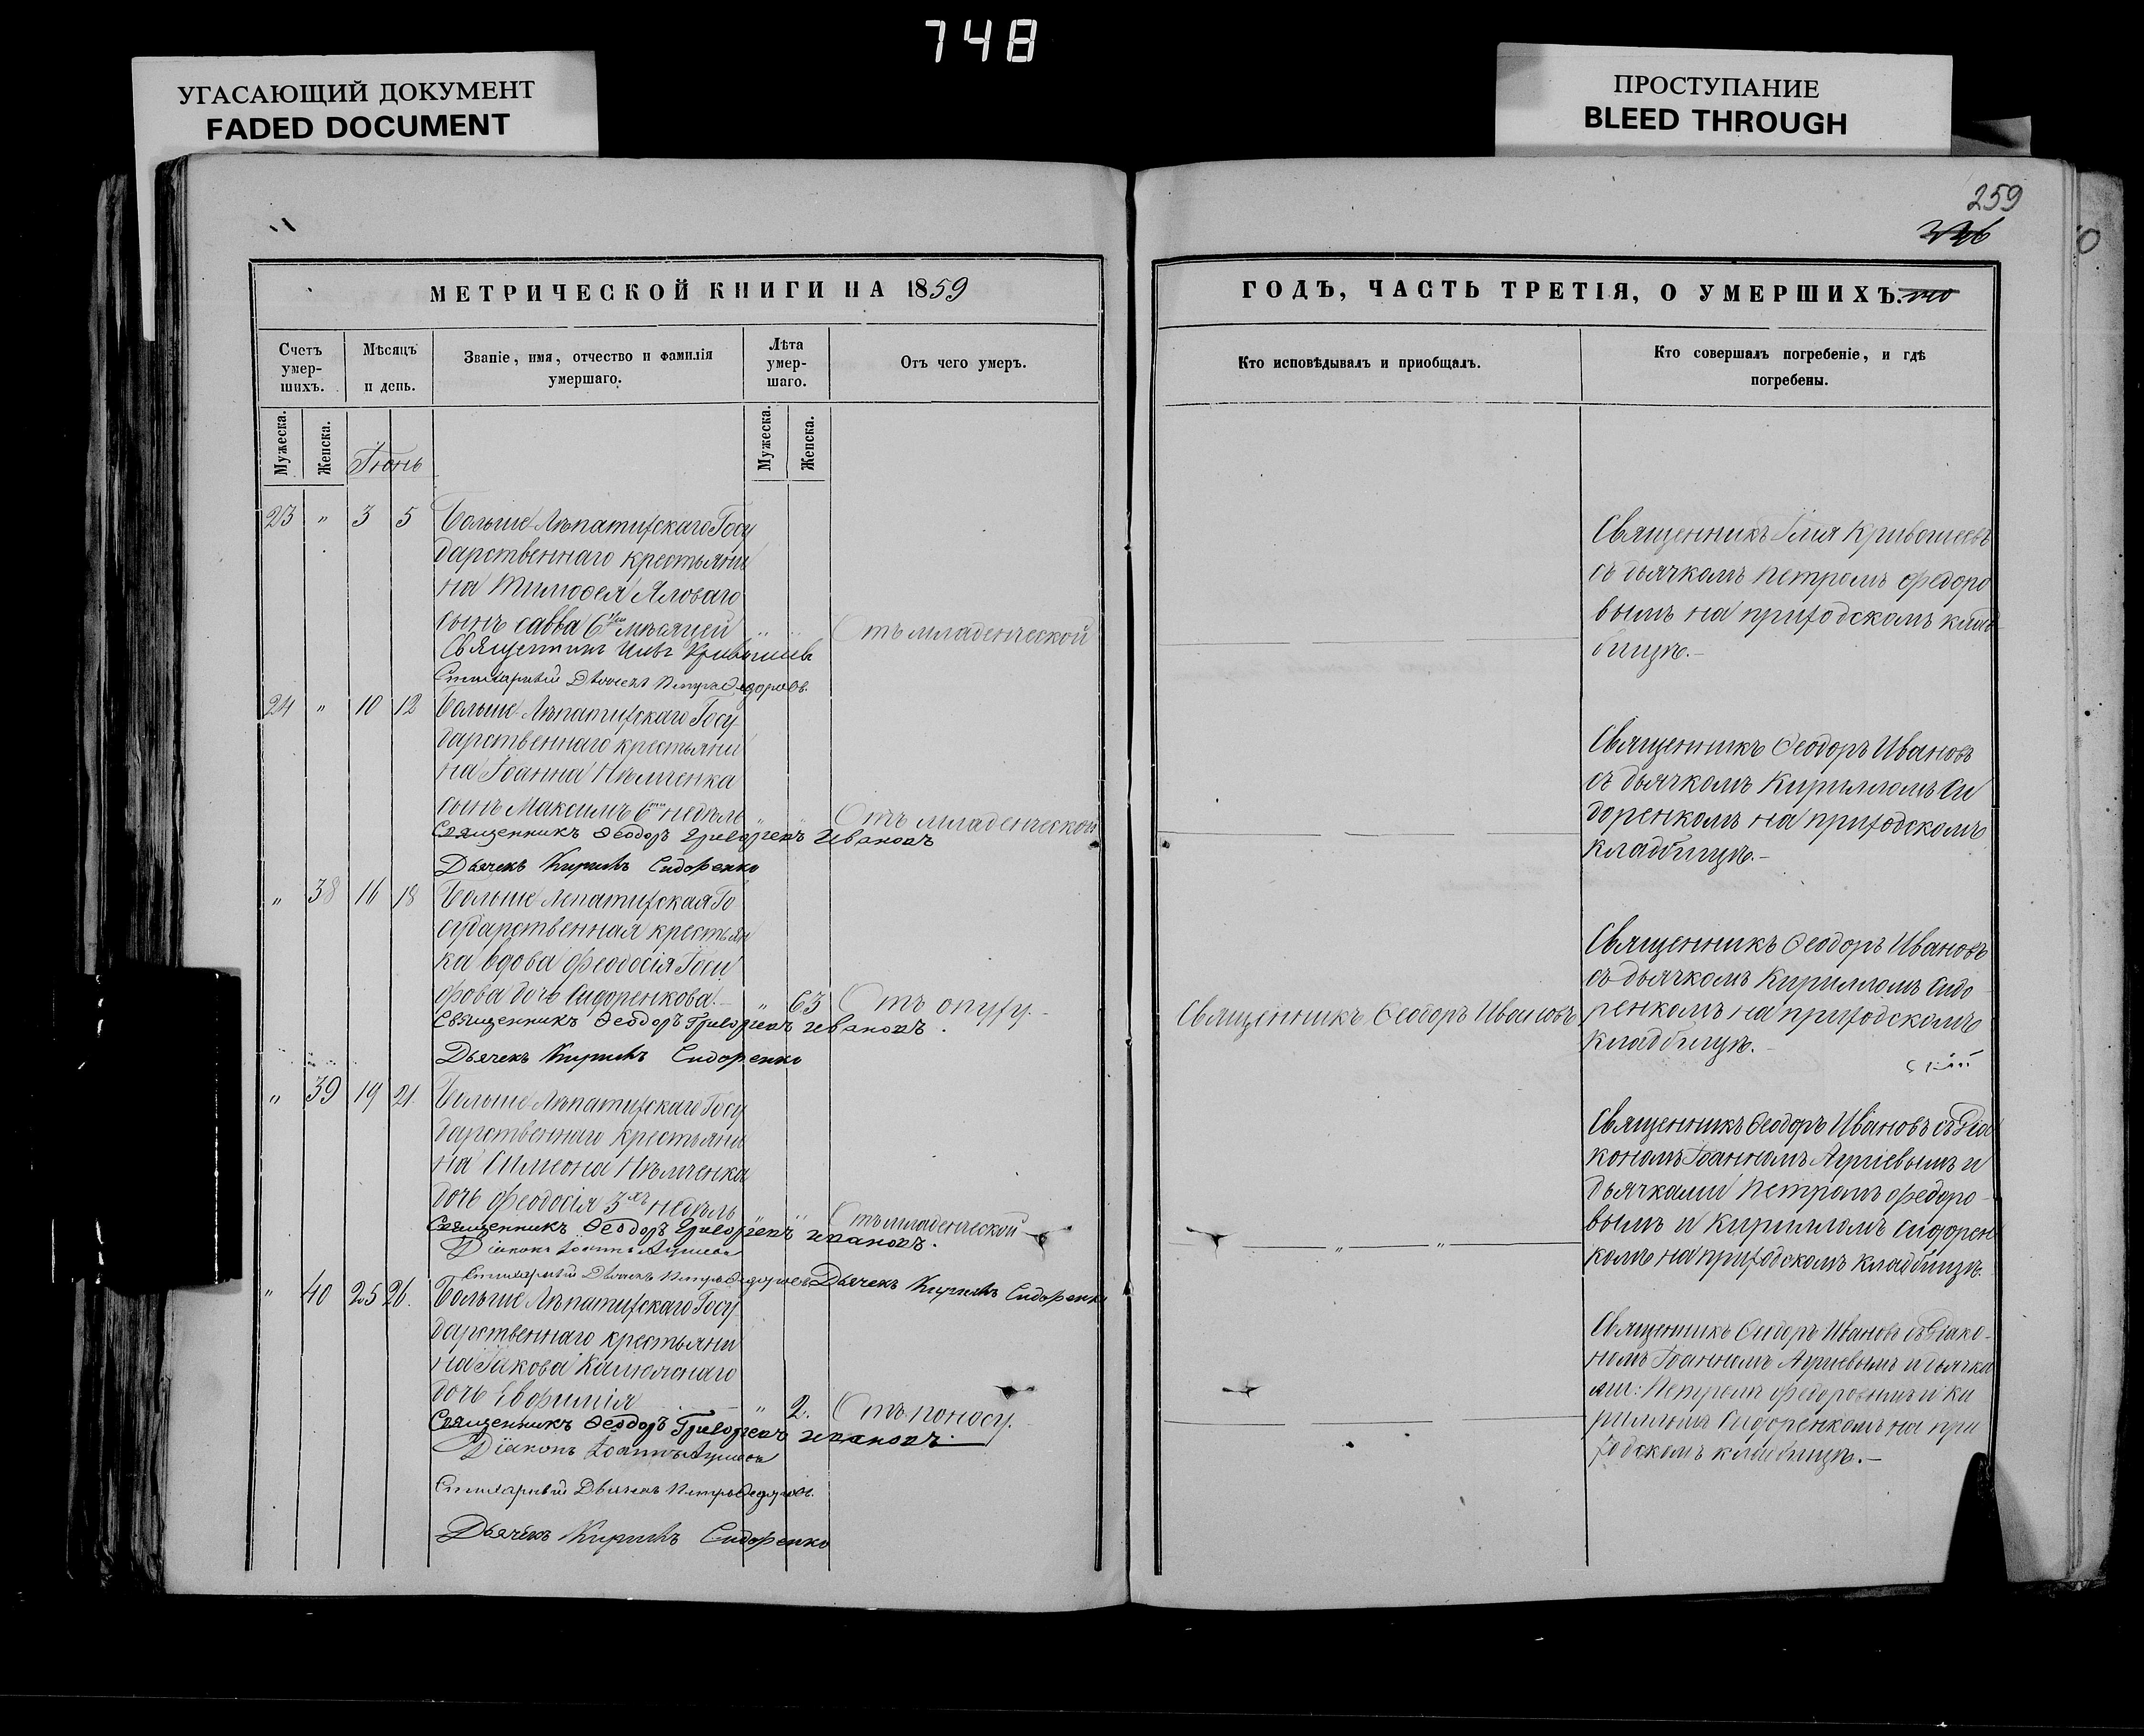 748
УГАСАЮЩИЙ ДОКУМЕНТ
FADED DOCUMENT
ПРОСТУПАНИЕ
BLEED THROUGH
259
МЕТРИЧЕСКОЙ КНИГИ НА 1859
ГОДЪ, ЧАСТЬ ТРЕТІЯ, О УМЕРШИХЪ.
Счетъ умер-шихъ.
Мѣсяцъ и день.
Званіе, имя, отчество и фамилія умершаго.
Лѣта умер-шаго.
Отъ чего умеръ.
Кто исповѣдывалъ и приобщалъ.
Кто совершалъ погребеніе, и гдѣ погребены.
Мужеска. Женска. Іюнь Мужеска. Женска.
23 " 3 5 Больше-Лѣпатихскаго Госу
дарственнаго крестьяни
на Тимофея Яловаго
сынъ Савва 6 мѣсяцей " " Отъ младенческой
Священникъ Илія Кривошеевъ
Стихарный Дьячекъ Петръ Ѳедоровъ.
Священникъ Илія Кривошеевъ
съ дьячкомъ Петромъ Федоро
вымъ на приходскомъ клад
бищѣ.-
24 " 10 12 Больше-Лѣпатихскаго Госу
дарственнаго крестьяни
на Іоанна Нѣмченка
сынъ Максимъ 6 недѣль " " Отъ младенческой
Священникъ Ѳеодоръ Григоріевъ Ивановъ
Дьячекъ Кирилъ Сидоренко
Священникъ Ѳеодоръ Ивановъ
съ дьячкомъ Кирилломъ Си
доренкомъ на приходскомъ
кладбищѣ.-
" 38 16 18 Больше Лепатихская Го
сударственная крестьян
ка вдова Феодосія
дочь Сидоренкова.- " 63 Отъ опуху.-
Священникъ Ѳеодоръ Григоріевъ Ивановъ.
Дьячекъ Кирилъ Сидоренко
Священникъ Ѳеодоръ Ивановъ
Священникъ Ѳеодоръ Ивановъ
съ дьячкомъ Кирилломъ Сидо
ренкомъ на приходскомъ
кладбищѣ.-
" 39 19 21. Больше-Лѣпатихскаго Госу
дарственнаго крестьяни
на Симеона Нѣмченка
дочь Феодосія 3хъ недѣль " " Отъ младенческой
Священникъ Ѳеодоръ Григоріевъ Ивановъ.
Діаконъ Іоаннъ
Стихарный Дьячекъ Петръ Ѳедоровъ Дьячекъ Кирилъ Сидоренко
Священникъ Ѳеодоръ Ивановъ съ Діа
кономъ Іоанномъ и
дьячками Петромъ Федоро-
вымъ и Кирилломъ Сидорен
комъ на приходскомъ кладбищѣ.
" 40 25 26. Больше Лѣпатихскаго Госу
дарственнаго крестьяни
на Іакова
дочь Евфимія " 2. Отъ поносу.
Священникъ Ѳеодоръ Григоріевъ Ивановъ.
Діаконъ Іоаннъ
Стихарный Дьячекъ Петръ Ѳедоровъ.
Дьячекъ Кирилъ Сидоренко
Священникъ Ѳеодоръ Ивановъ съ Діако-
номъ Іоанномъ и дьячка
ми: Петромъ Федоровымъ и Ки
рилломъ Сидоренкомъ на при
ходскомъ кладбищѣ.-